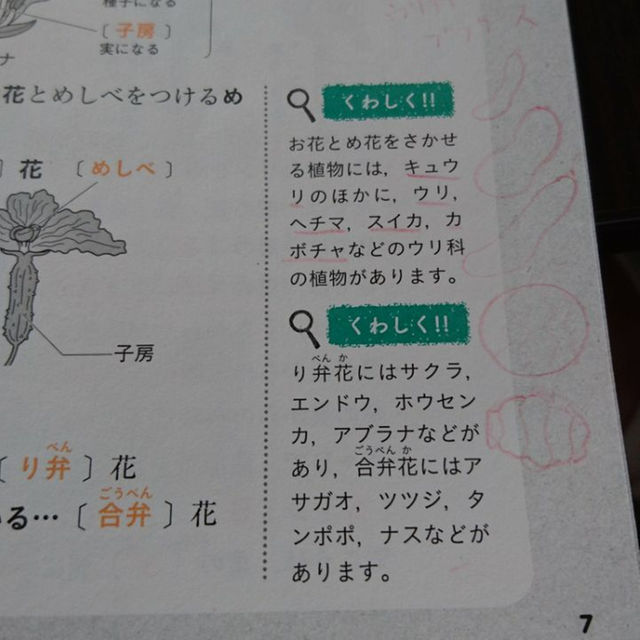 種子になる
〔子房〕
実になる
ナ
花とめしべをつけるめ
花 〔めしべ〕
子房
〔り弁〕花
べん
いる…〔合弁〕花
ごうべん
くわしく!!
お花とめ花をさかせ
る植物には，キュウ
リのほかに，ウリ，
ヘチマ，スイカ，カ
ボチャなどのウリ科
の植物があります。
くわしく!!
べん か
り弁花にはサクラ，
エンドウ，ホウセン
カ，アブラナなどが
ごうべん か
あり，合弁花にはア
サガオ，ツツジ，タ
ンポポ，ナスなどが
あります。
7